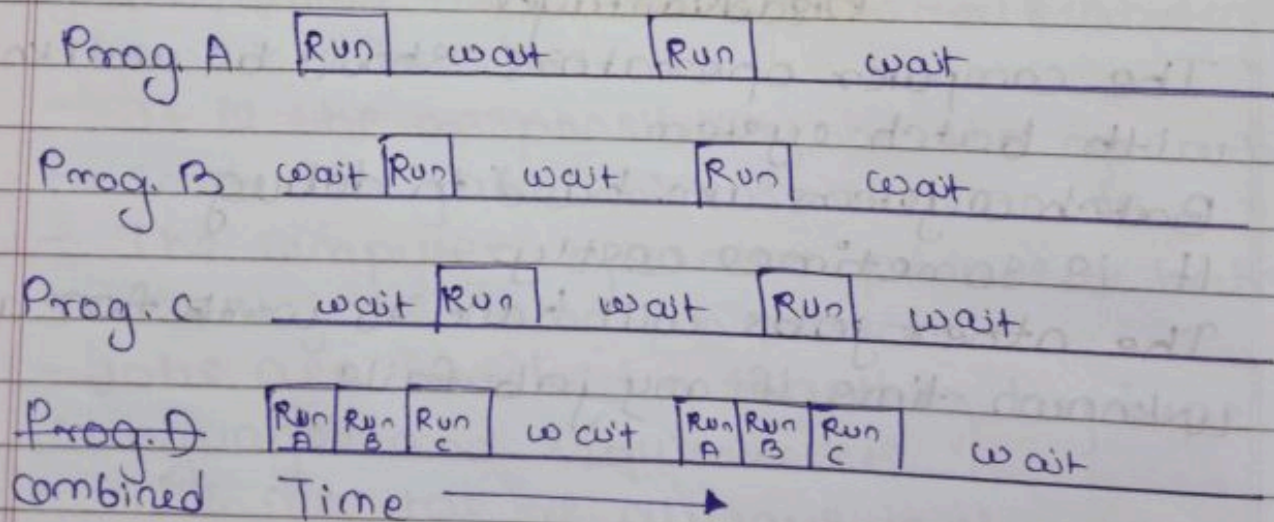 Prog. A Run wait Run wait
Prog. B wait Run wait Run wait
Prog. C wait Run wait Run wait
Prog. D Run A Run B Run C wait Run A Run B Run C wait
combined Time